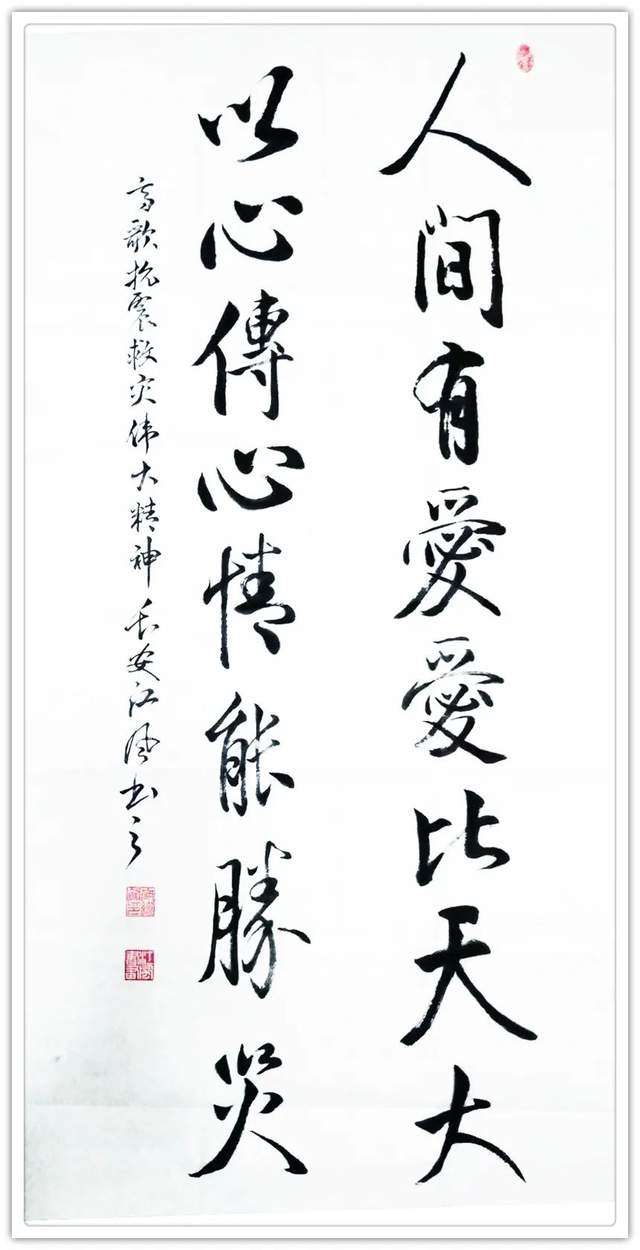 人間有愛愛比天大
以心傳心情能勝災
高歌抗震救灾伟大精神 长安江风书之